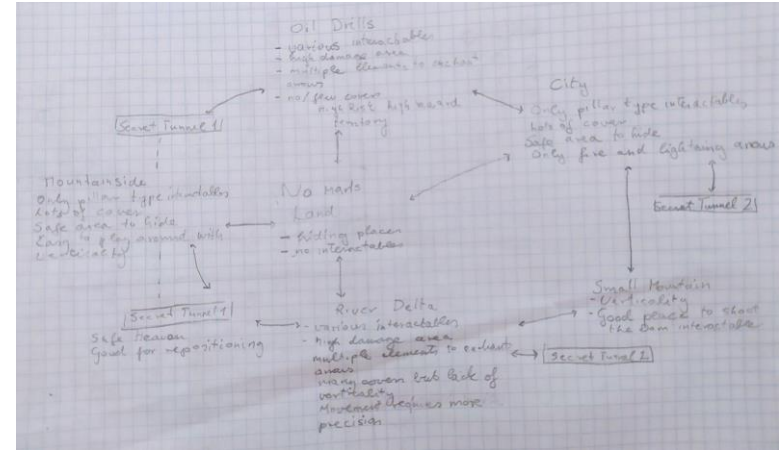 Oil Drills
- various interactables
- high damage area
- multiple elements to enchant
arrows
- no/few covers
High Risk high reward
territory
City
Only pillar type interactables
Lots of cover
Safe area to hide
Only fire and lightning arrows
Secret Tunnel 1
Mountainside
Only pillar type interactables
Lots of cover
Safe area to hide
Easy to play around with
verticality
No Mans
Land
- hiding places
- no interactables
Secret Tunnel 2
Secret Tunnel 1
Safe Heaven
Good for repositioning
River Delta
- various interactables
- high damage area
multiple elements to enchant
arrows
many covers but lack of
verticality
Movement requires more
precision
Small Mountain
- Verticality
- Good place to shoot
the Dam interactable
Secret Tunnel 2